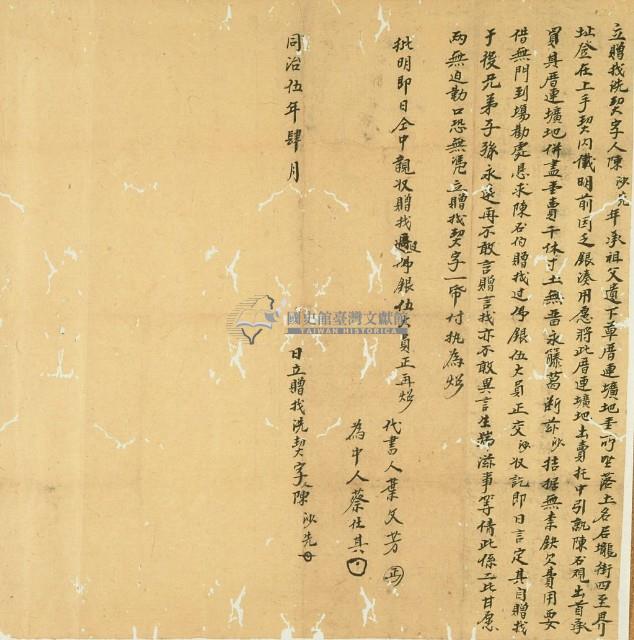 立贈找洗契字人陳沙先年承祖父遺下草厝連壙地壹所坐落土名后壠街四至界
址登在上手契內儎明前因乏銀凑用愿將此厝連壙地出賣托中引就陳石硯出首承
買其厝連壙地併盡壹賣千休寸土無留永籐葛断兹沙拮据無柰缺欠費用要
借無門到場勘處懇求陳石的贈找过佛銀伍大員正交沙收訖即日言定其自贈找
于後兄弟子孫永遠再不敢言贈言找亦不敢異言生端滋事等情此係二比甘愿
両無迫勒口恐無憑立贈找契字一帋付执為炤
批明即日仝中親收贈找過佛銀伍大員正再炤
代書人葉文芳
為中人蔡仕其
同治伍年肆月 日立贈找洗契字人陳沙先
國史館臺灣文獻館
TAIWAN HISTORICA